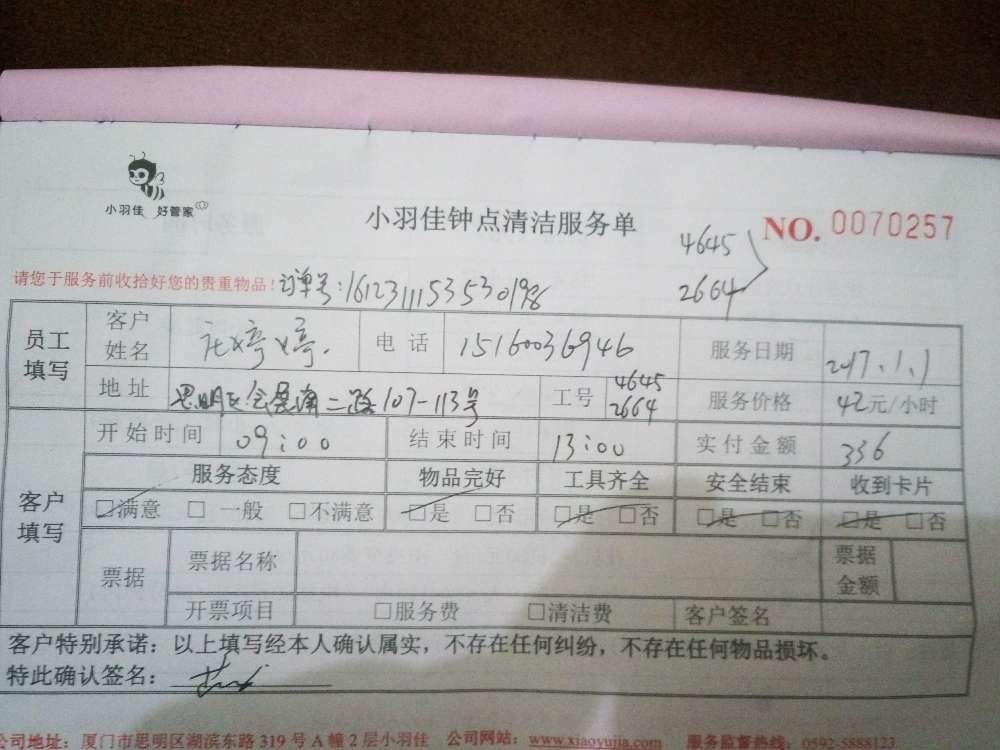 小羽佳 好管家
小羽佳钟点清洁服务单
NO. 0070257
4645
2664
请您于服务前收拾好您的贵重物品!
订单号:1612311153530198
员工填写 客户姓名 庄婷婷. 电话 15160036946 服务日期 2017.1.1
地址 思明区会展南二路107-113号 工号 4645 2664 服务价格 42元/小时
客户填写 开始时间 09:00 结束时间 13:00 实付金额 336
服务态度 物品完好 工具齐全 安全结束 收到卡片
□满意 □一般 □不满意 □是 □否 □是 □否 □是 □否 □是 □否
票据 票据名称 票据金额
开票项目 □服务费 □清洁费 客户签名
客户特别承诺:以上填写经本人确认属实,不存在任何纠纷,不存在任何物品损坏。
特此确认签名:
公司地址:厦门市思明区湖滨东路319号A幢2层小羽佳 公司网站:www.xiaoyujia.com 服务监督热线:0592-5888123